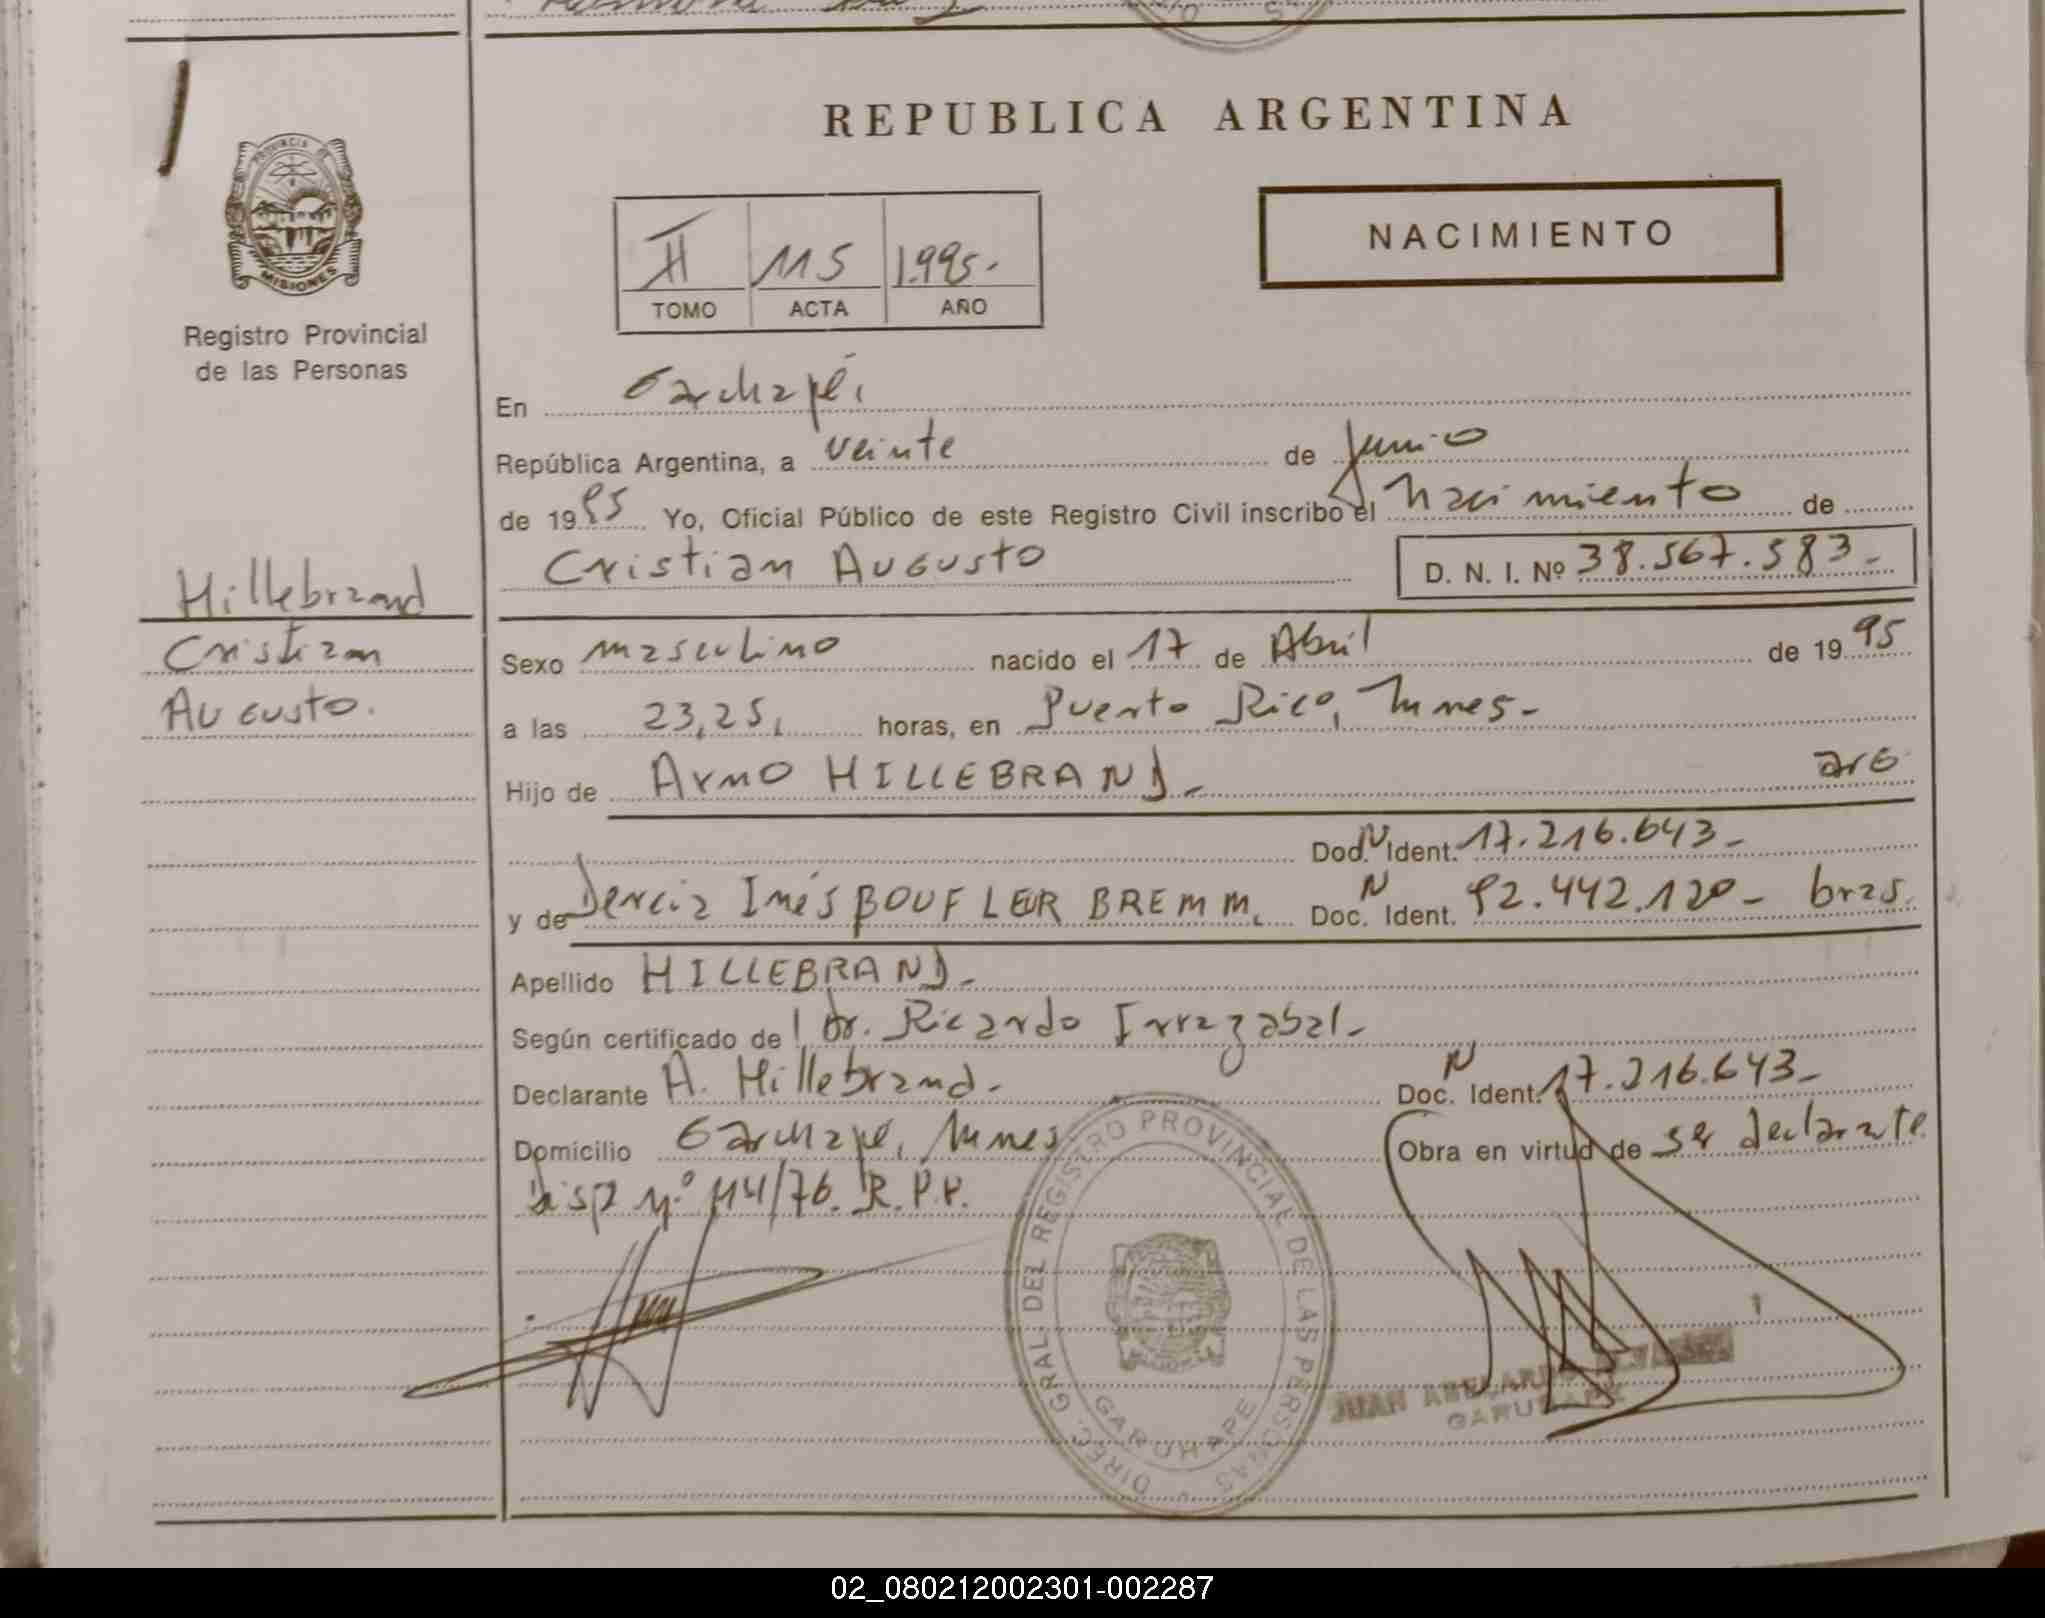 REPUBLICA ARGENTINA
PROVINCIA DE MISIONES
Registro Provincial
de las Personas
NACIMIENTO
II 115 1.995.-
TOMO ACTA AÑO
En Garuhapé,
República Argentina, a veinte de Junio
de 1995 Yo, Oficial Público de este Registro Civil inscribo el Nacimiento de
Cristian Augusto D. N. I. Nº 38.567.583.-
Hillebrand
Cristian
Augusto.
Sexo masculino nacido el 17 de Abril de 1995
a las 23,25, horas, en Puerto Rico, Mnes.-
Hijo de Arno HILLEBRAND.- arg.
Doc. N Ident. 17.216.643.-
y de Dercia Inés BOUFLEUR BREMM. Doc. N Ident. 92.442.120.- bras.
Apellido HILLEBRAND.-
Según certificado de Dr. Ricardo Irrazabal.-
Declarante A. Hillebrand.- Doc. N Ident. 17.216.643.-
Domicilio Garuhapé, Mnes Obra en virtud de ser declarante.
Disp nº 114/76. R.P.P.
DIREC. GRAL. DEL REGISTRO PROVINCIAL DE LAS PERSONAS
GARUHAPE
JUAN ABELARDO
GARUHAPE
02_080212002301-002287